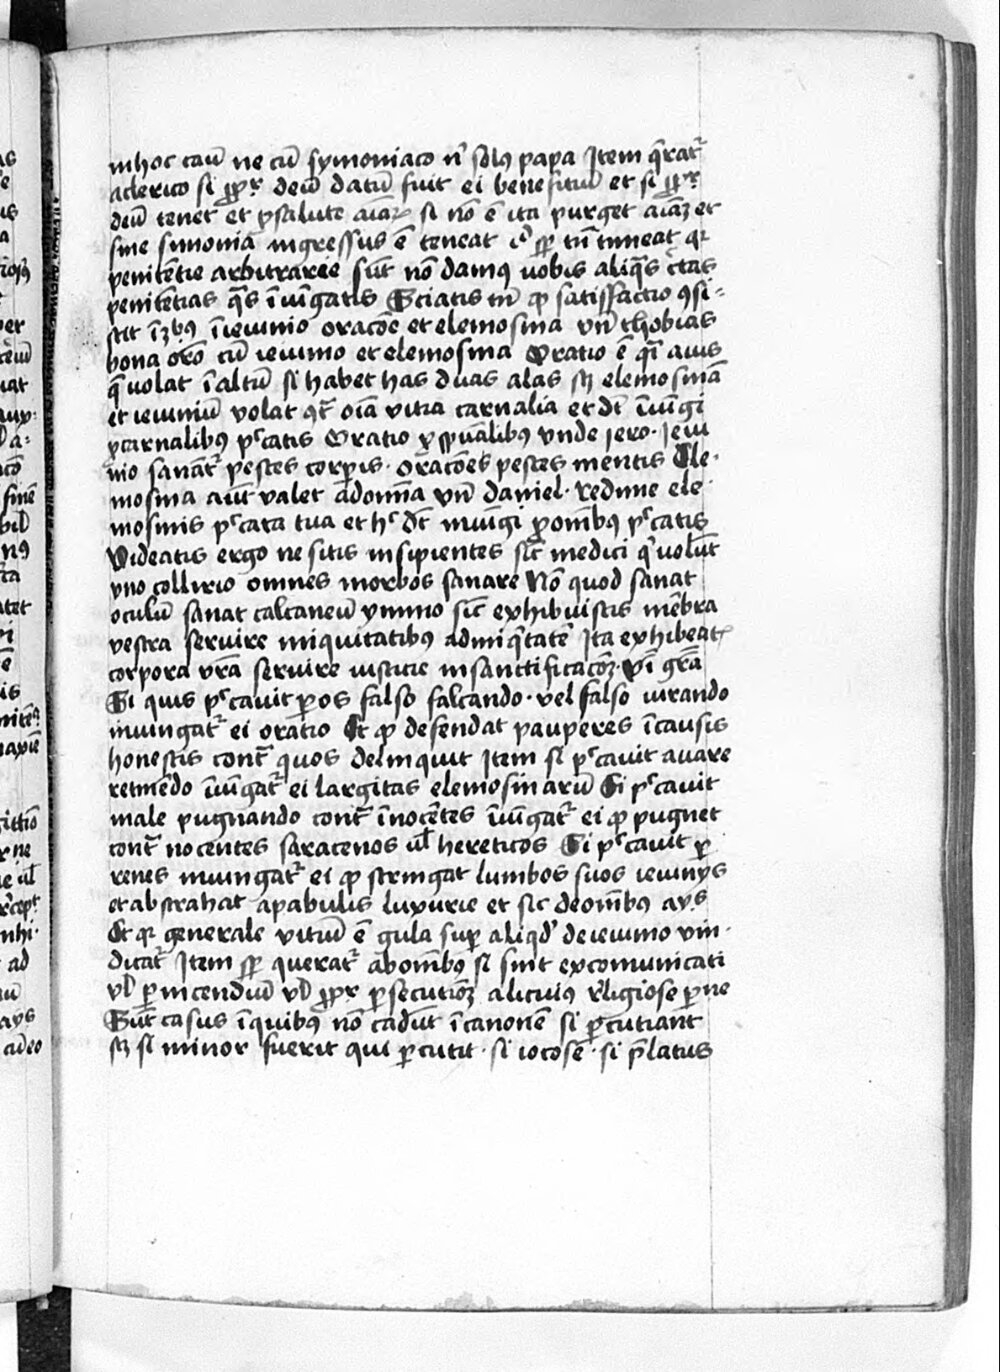 inhoc cauū ne cū symoniaco nˡ solꝰ papa Item q̄ratᷣ
aclerico si ꝓpᵉr deū datū fuit ei benefitiū et si ꝓpᵉr
deū tenet et ꝓsalute aīaꝝ si nō ē ita purget aīaꝫ et
sine simonia īngressus ē teneat
penitētie arbitrarie sūt nō damꝰ uobis aliq̄s c̄tas
penitētias q̄s īiūngatis Sciatis tn̄ ꝙ satisfactio ꝯsi-
stit īꝫbꝰ īieiunio oracōe et elemosina vn̄ thobias
bona orō cū ieiunio et elemosina Oratio ē qͥ auis
q̄ volat ī altū si habet has duas alas sꝫ elemosinā
et ieiuniū volat ꝯt̄ oīa vitia carnalia et dꝫ īiūngi
ꝓcarnalibꝰ pᶜcatis Oratio ꝓ spūalibꝰ vnde jero· Jeiu
nio sanātᷣ pestes corpis· oracōes pestes mentis Ele-
mosina aūt valet adomīa vn̄ daniel· redime ele-
mosinis pᶜcata tua et hᶜ dꝫ iniūgi ꝓomībꝰ pᶜcatis
Videatis ergo ne sitis insipientes sīc medici qͥ uolūt
vno collirio omnes morbos sanare Nō quod sanat
oculū sanat calcaneū ymmo sīc exhibuistis mēbra
vestra seruire iniquitatibꝰ adiniqͥtatē Ita exhibeatᷣ
corpora vr̄a seruire iusticie insanctificacōꝫ· Vˡ gr̄a
Si quis pᶜcauit p os falso falcando· vel falso iurando
iniungatᷣ ei oratio Et ꝙ defendat pauperes īcausis
honestis cont̄ quos delinquit Item si pᶜcauit auare
retinēdo īiūgatᷣ ei largitas elemosinarū Si pᶜcauit
male pugnando cont̄ īnocētes īiūgatᷣ ei ꝙ pugnet
cont̄ nocentes saracenos ul̄ hereticos Si pᶜcauit ꝑ
renes iniungatᷣ ei ꝙ stringat lumbos suos ieiunys
et abstrahat apabulis luxurie et sic deomībꝰ ays
Et qꝛ generale vitiū ē gula sup aliqd̓ deieiunio vin-
dicatᷣ Item sp̄ queratᷣ abomībꝰ si sint excomunicati
vl̄ ꝑ incendiū vl̄ ꝓpᵉr ꝑsecutiōꝫ alicuiꝰ rˡigiose ꝑne
Sūt casus īquibꝰ nō cadūt īcanonē si ꝑcutiant
sꝫ si minor fuerit qui ꝑcutit· si iocose· si p̄latus